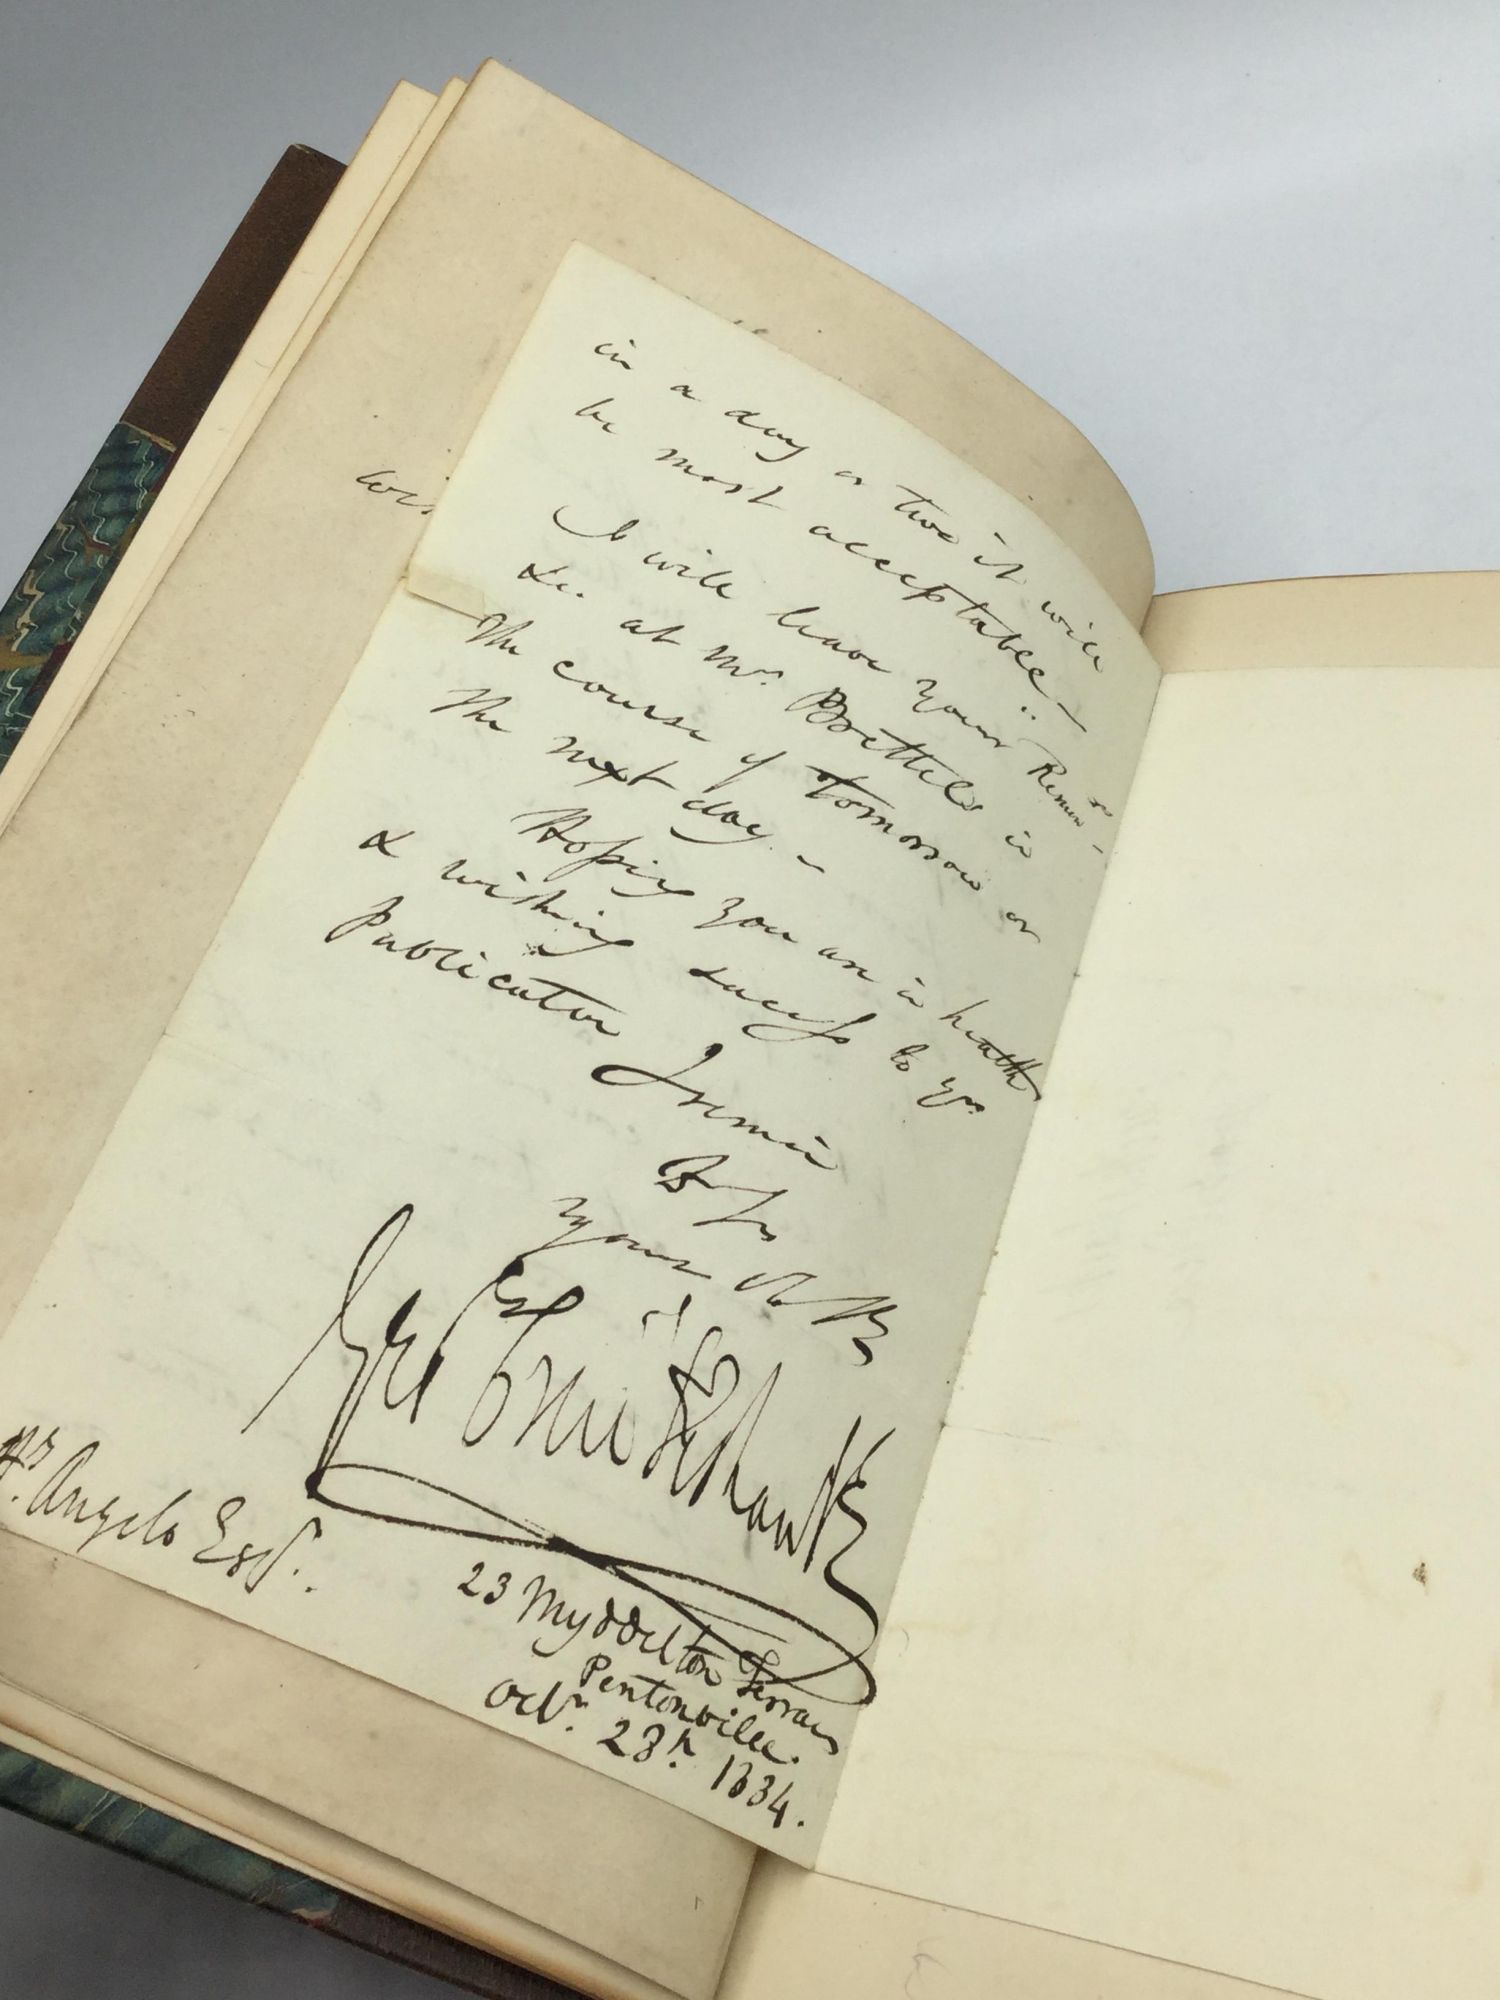 in a day or two it will
be most acceptable –
I will leave your Remin
&c. at Mr. Brettels in
the course of tomorrow or
the next day –
Hoping you are in health
& wishing success to yr
publication I remain
Dr Sir
yours
Geo Cruikshank
Hy. Angelo Esqr.
23 Myddelton Terrace
Pentonville.
Octr. 23rd 1834.